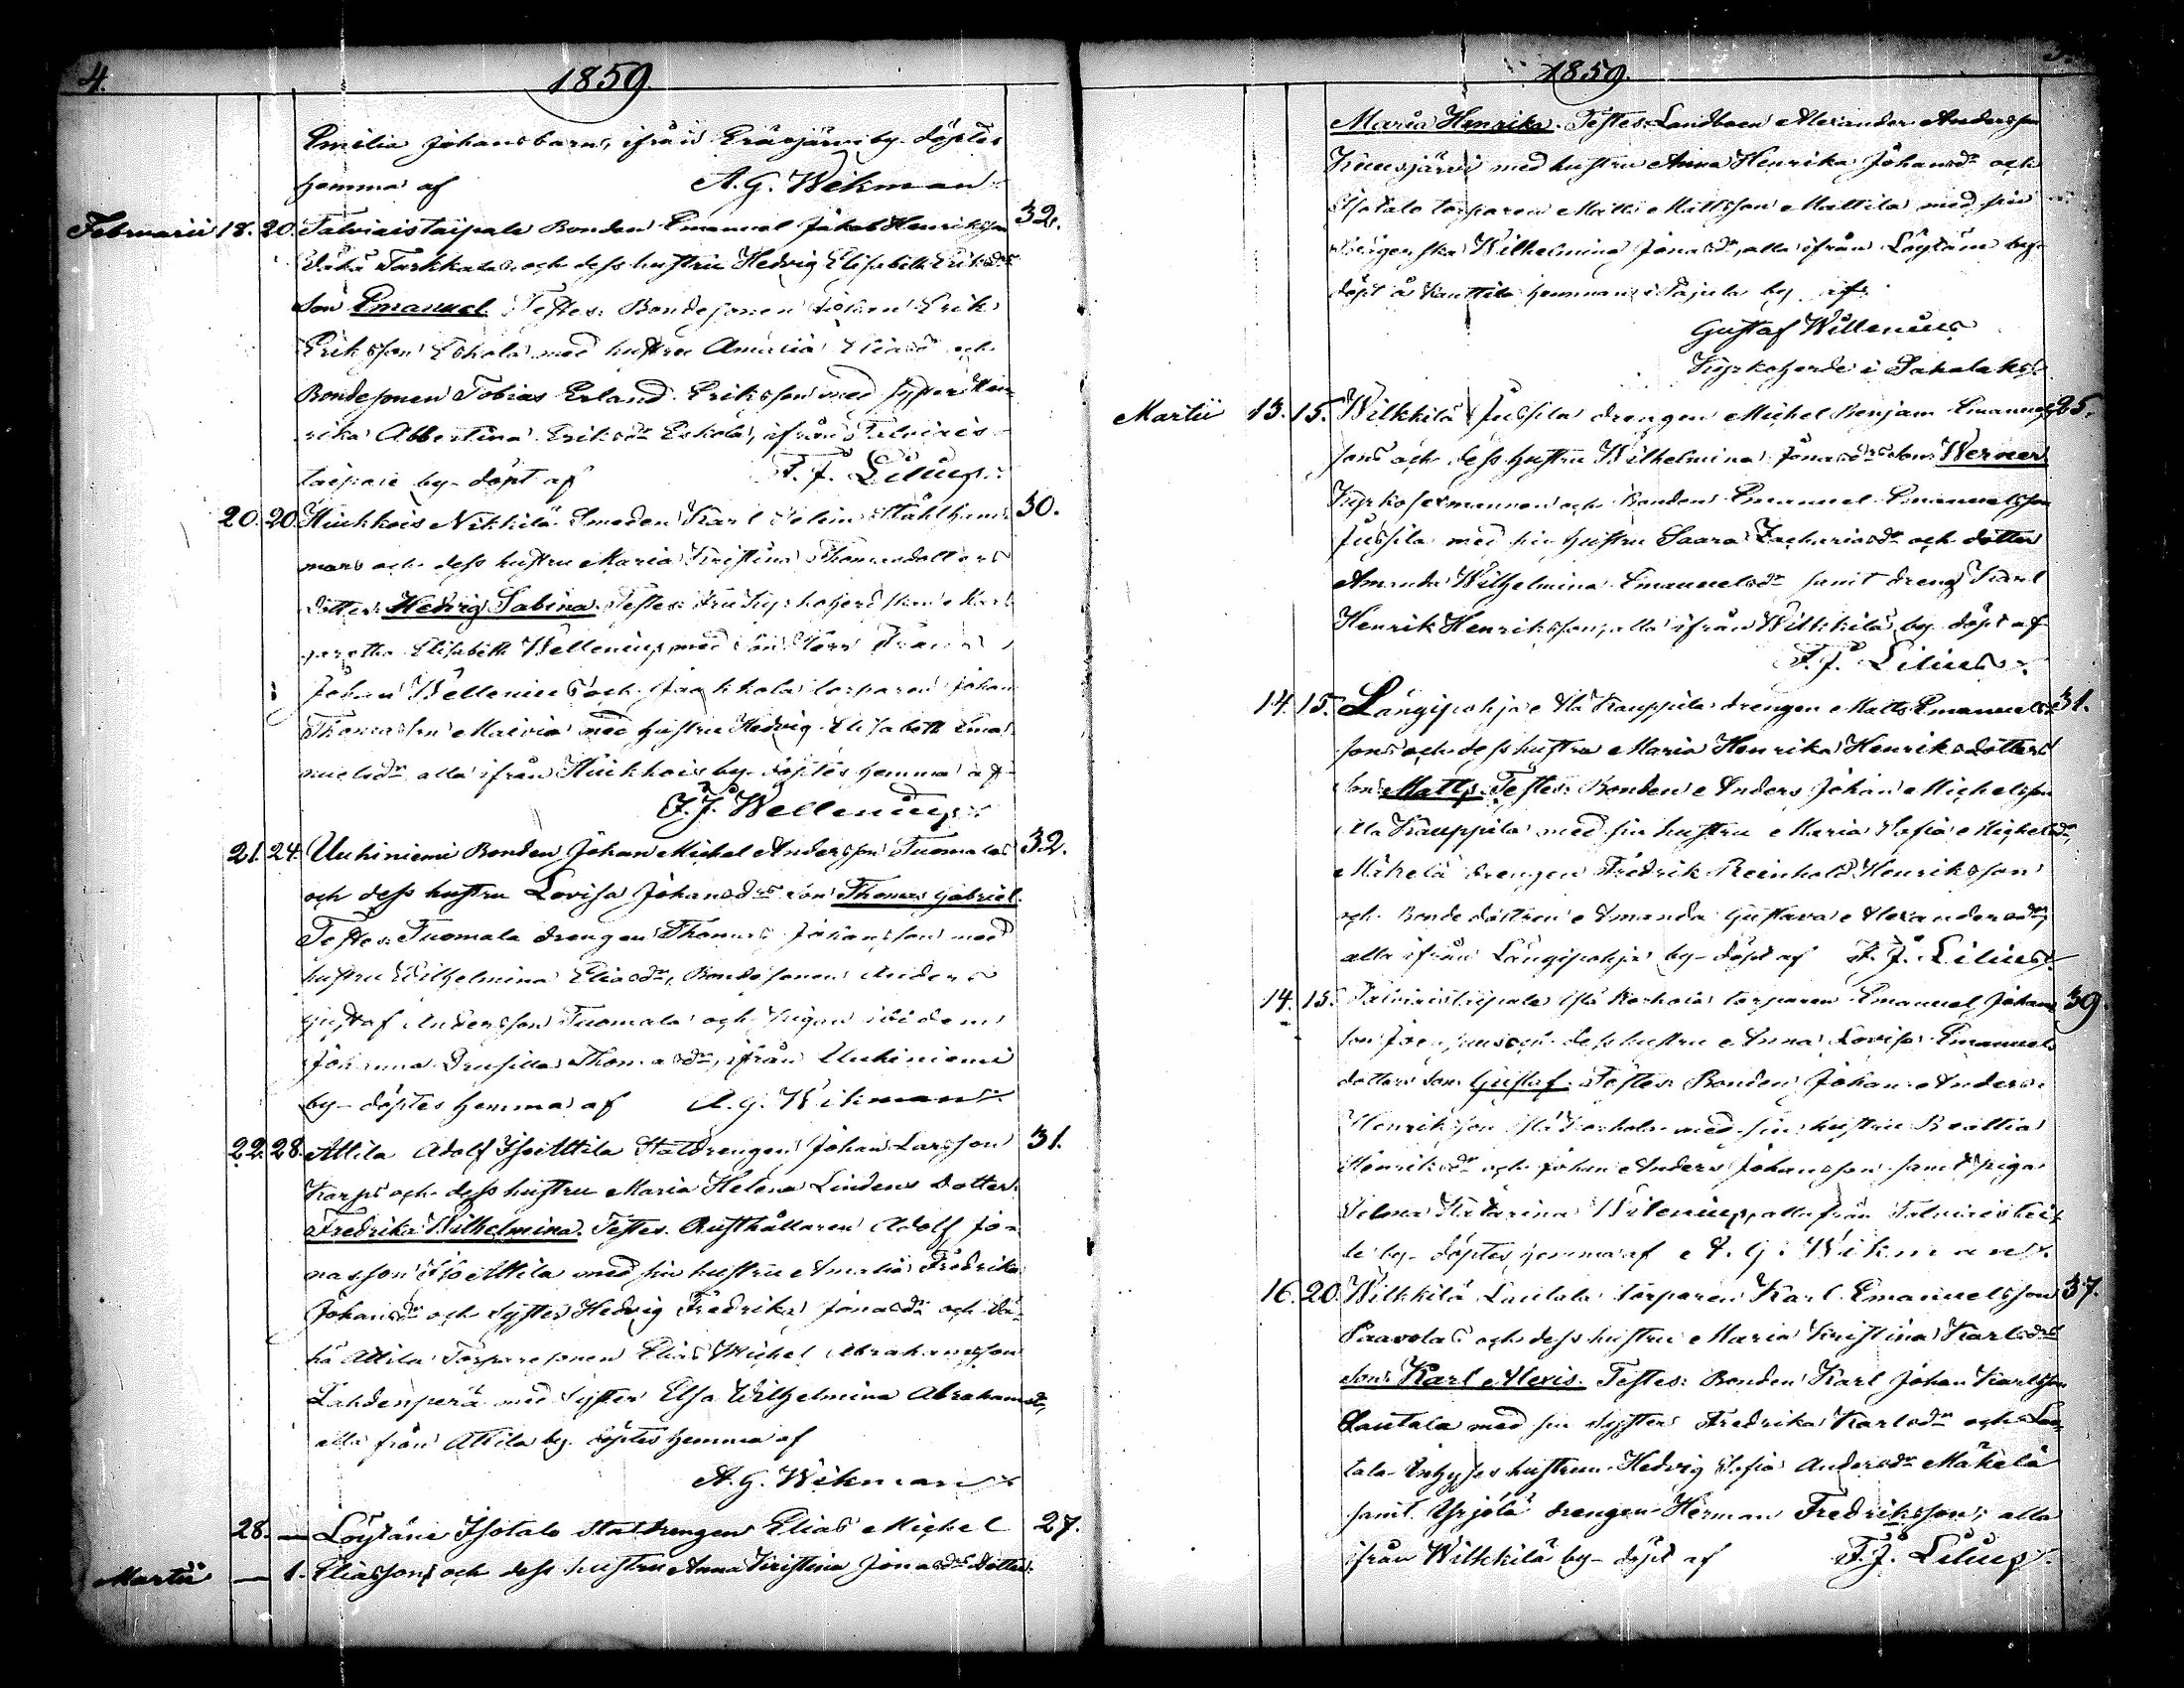 4.
1859.
Emilia Johansbarns, ifrån Eräsjärvi by döptes
hemma af A. G. Wikman
Februarii 18. 20. Talviaistaipale Bonden Emanuel Jakob Henriksson 32.
Tarkkalas och dess hustru Hedvig Elisabeth Eriksdrs
Son Emanuel. Testes: Bondesonen Johan Erik
Eriksson Eskola med hustru Amalia och
Bondesonen Tobias Erland Eriksson med syster Hen-
rika Albertina Eriksdr Eskola, ifrån Talviais-
taipale by döpt af F. J. Lilius.
20. 20. Hiukkois Nikkilä Smeden Karl Stålham- 30.
mars och dess hustru Maria Kristina Thomasdotters
dotter Hedvig Sabina. Testes: Fru Kyrkoherdskan Mar-
garetha Elisabeth Wellenius med son Herr Frans
Johan Wellenius och Jaakkola torparen Johan
Thomasson med hustru Hedvig Elisabeth Ema-
nuelsdr alla ifrån Hiukkois by döptes hemma af
F. J. Wellenius.
21. 24. Uuhiniemi Bonden Johan Michel Andersson Tuomalas 32.
och dess hustru Lovisa Johansdrs son Thomas Gabriel.
Testes: Tuomala drengen Thomas Johansson med
hustru Wilhelmina Eliasdr, Bondesonen Anders
Gustaf Andersson Tuomala och pigan ibidem
Johanna Drusilla Thomasdr, ifrån Uuhiniemi
by döptes hemma af A. G. Wikman.
22. 28. Attila Adolf Iso Attila Statdrengen Johan Larsson 31.
Karps och dess hustru Maria Helena Lindens Dotter
Fredrika Wilhelmina. Testes. Rusthållaren Adolf Jo-
nasson Iso Attila med sin hustru Amalia Fredrika
Johansdr och Syster Hedvig Fredrika Jonasdr och Vä-
hä Attila Torparesonen Elias Michel Abrahamsson
Lahdenperä med Syster Elsa Wilhelmina Abrahamsdr,
alla från Attila by. döptes hemma af
A. G. Wikman
28. — Löytäne Isotalo Statdrengen Elias Michel 27.
Martii — 1. Eliassons och dess hustru Anna Kristina Jonasdrs Dotter:
1859.
Maria Henrika. Testes: Landboen Alexander Andersson
Kuusjärvi med hustru Anna Henrika Johansdr och
Isotalo torparen Matts Mattsson Mattila med sin
Wilhelmina Jonasdr, alla ifrån Löytäne by
döpt å Kauttila hemman i Sajula by af
Gustaf Willenius
Kyrkoherde i Sahalahti
Martii 13. 15. Wilkkilä Jussila drengen Michel Benjam Emanuels- 25.
sons och dess hustru Wilhelmina Jonasdrs son Werner
Kyrkosexmannen och Bonden Emanuel Emanuelsson
Jussila med sin hustru Saara Zachariasdr och dotter
Amanda Wilhelmina Emanuelsdr samt dreng Karl
Henrik Henriksson, alla ifrån Wilkkilä by döpt af
F. J. Lilius.
14. 15. Längipohja Ala Kauppila drengen Matts Emanuels- 31.
sons och dess hustru Maria Henrika Henriksdotters
Son Matts. Testes: Bonden Anders Johan Michelsson
Ala Kauppila med sin hustru Maria Sofia Michelsdr,
Mäkelä drengen Fredrik Reinhold Henriksson
och Bonde dottren Amanda Gustava Alexandersdr,
alla ifrån Längipohja by döpt af F. J. Lilius.
14. 15. Talviaistaipale torparen Emanuel Johans- 39.
son och dess hustru Anna Lovisa Emanuels
dotters son Gustaf. Testes: Bonden Johan Anders
Henriksson med sin hustru
Henriksdr och Johan Anders Johansson samt piga
Katarina Wilenius, alla från Talviaistai-
le by. döptes hemma af A. G. Wikman.
16. 20. Wilkkilä Lautala torparen Karl Emanuelsson 37.
Paavolas och dess hustru Maria Kristina Karlsdrs
son: Karl Alexis. Testes: Bonden Karl Johan Karlsson
Lautala med sin syster Fredrika Karlsdr och Lau-
tala inhyses hustrun Hedvig Sofia Andersdr Mäkelä
samt Yrjölä drengen Herman Fredriksson, alla
ifrån Wilkkilä by döpt af F. J. Lilius.